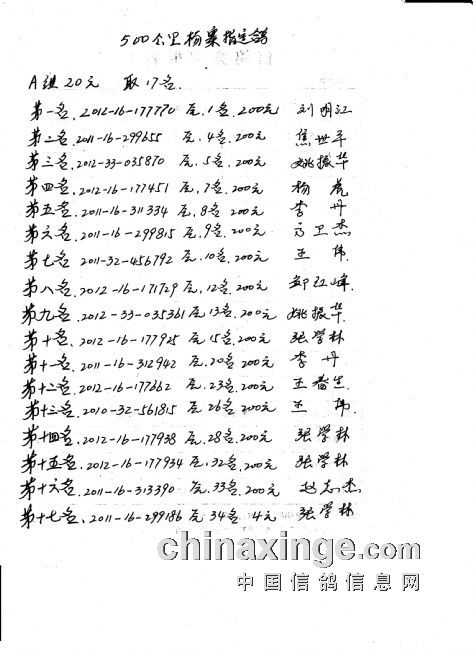 500公里档案指定鸽
A组20元 取17名.
第一名. 2012-16-177770 居.1名.200元 刘明江
第二名. 2011-16-299655 居.4名.200元 焦世平
第三名. 2012-33-035870 居.5名.200元 姚振华
第四名. 2012-16-177451 居.7名.200元 杨虎
第五名. 2011-16-311334 居.8名.200元 李丹
第六名. 2011-16-299815 居.9名.200元 卫杰
第七名 2011-32-456792 居.10名.200元 王伟
第八名. 2012-16-171729 居.12名.200元 红峰.
第九名. 2012-33-035361 居13名.200元 姚振华.
第十名. 2012-16-177925 居15名.200元 张学林
第十一名. 2011-16-312942 居.20名.200元 李丹
第十二名. 2012-16-177262 居.23名.200元 王
第十三名. 2010-32-561815 居26名.200元 王伟
第十四名. 2012-16-177938 居.28名.200元 张学林
第十五名. 2012-16-177934 居.32名.200元 张学林
第十六名. 2011-16-313390 居.33名.200元 赵志杰
第十七名. 2011-16-299186 居34名 4元 张学林
chinaxinge.com
中国信鸽信息网